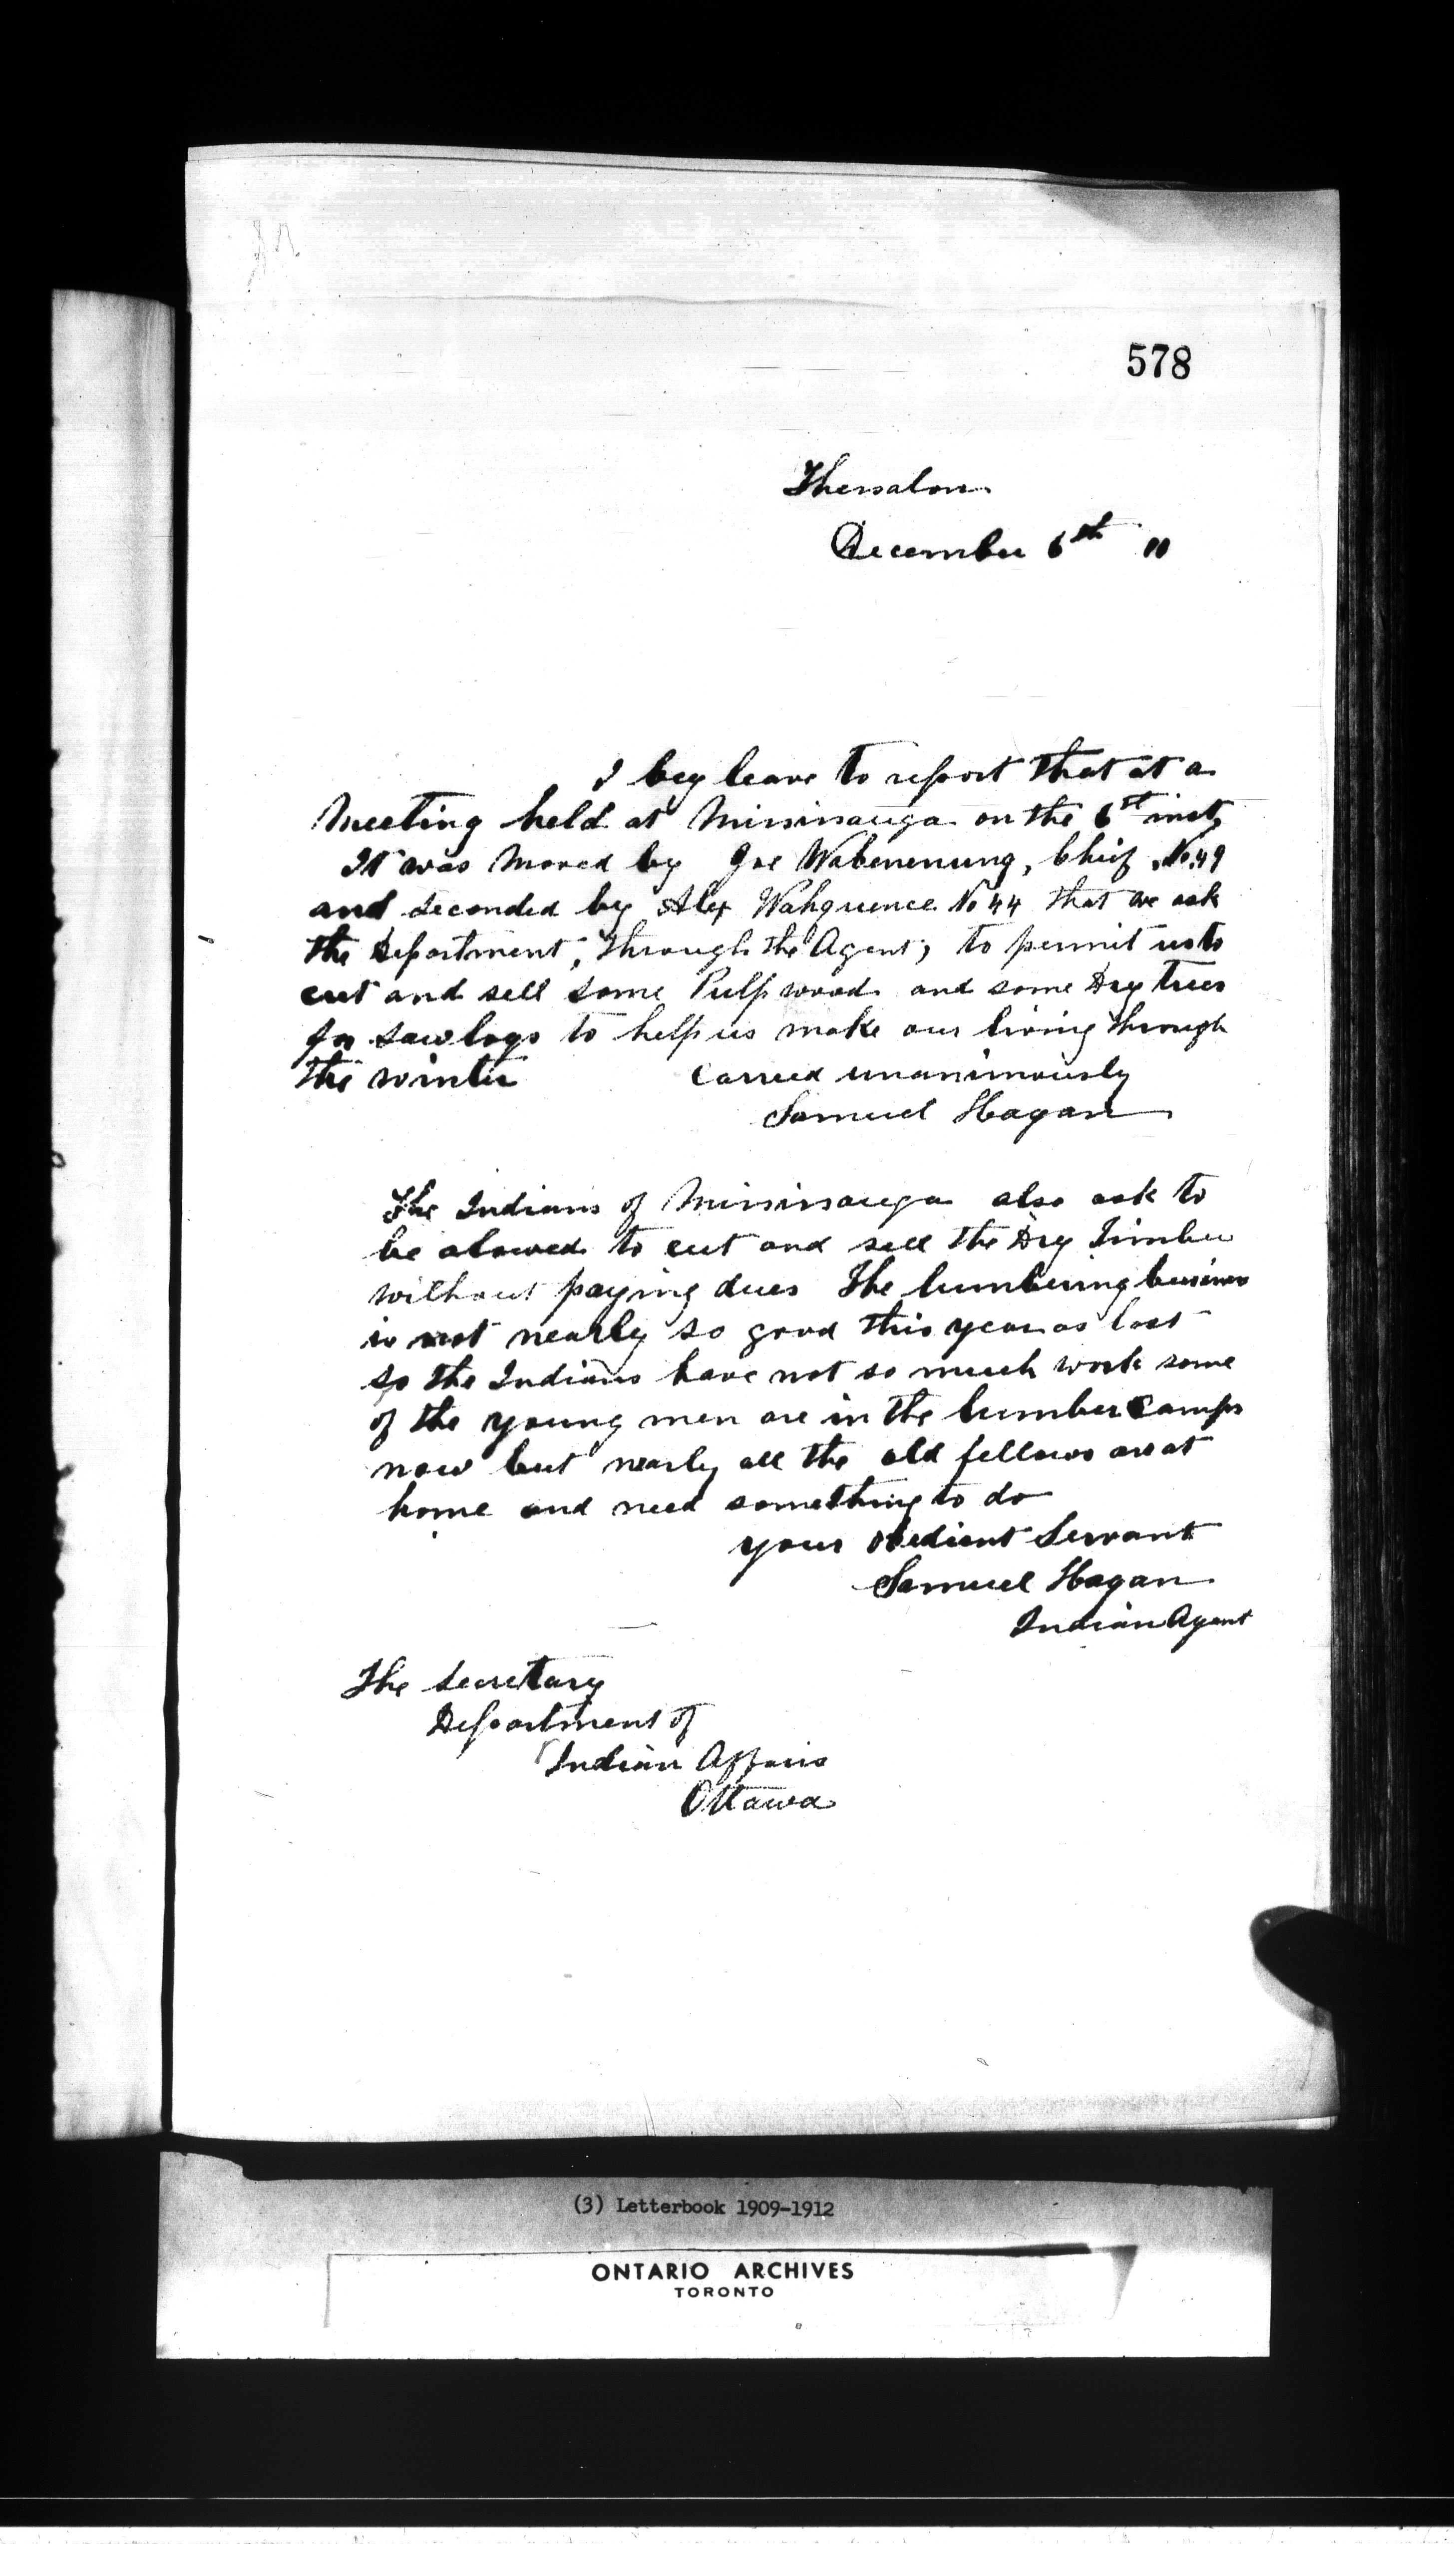 578
Thessalon
December 6th 11
I beg leave to report that at a
Meeting held at Mississauga on the 6st inst,
It was Moved by Joe Wabenenung, Chief No. 49
and Seconded by Alex Wahquence No 44 that we ask
the Department, through the Agent, to permit us to
cut and sell some Pulp wood and some Dry trees
for saw logs to help us make our living through
the winter Carried unanimously
Samuel Hagan
The Indians of Mississauga also ask to
be alowed to cut and sell the Dry Timber
without paying dues The lumbering business
is not nearly so good this year as last
so the Indians have not so much work some
of the young men are in the lumber Camps
now but nearly all the old fellows are at
home and need something to do
your obedient Servant
Samuel Hagan
Indian Agent
The Secretary
Department of
Indian Affairs
Ottawa
(3) Letterbook 1909-1912
ONTARIO ARCHIVES
TORONTO